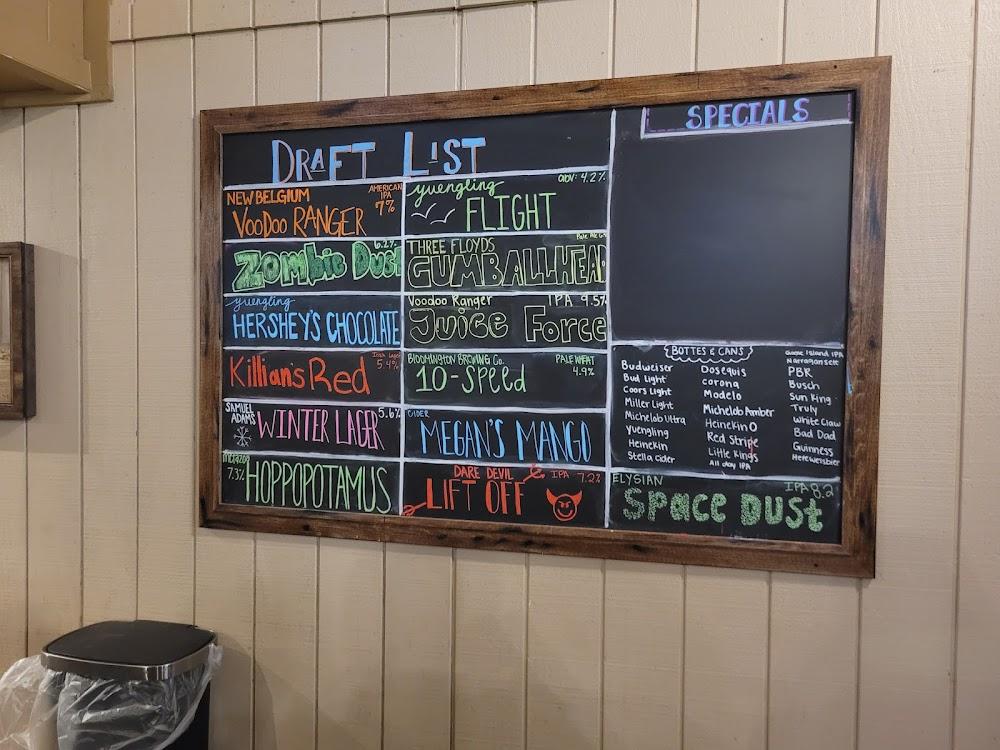 DRAFT LIST
NEW BELGIUM
AMERICAN
IPA
7%
VOODOO RANGER
6.2%
Zombie Dust
yuengling
HERSHEY'S CHOCOLATE
Irish Lager
5.4%
Killian's Red
SAMUEL
ADAMS
WINTER LAGER
5.6%
Metazoa
7.3%
HOPPOPOTAMUS
yuengling
abv: 4.2%
FLIGHT
THREE FLOYDS
Pale Ale
GUMBALLHEAD
Voodoo Ranger
IPA 9.5%
Juice Force
BLOOMINGTON BREWING Co.
PALE WHEAT
4.9%
10-Speed
CIDER
MEGAN'S MANGO
DARE DEVIL
IPA 7.2%
LIFT OFF
SPECIALS
BOTTES & CANS
Budweiser
Bud Light
Coors Light
Miller Light
Michelob Ultra
Yuengling
Heinekin
Stella cider
Dosequis
corona
Modelo
Michelob Amber
Heinekin O
Red Stripe
Little Kings
All day IPA
Goose Island IPA
Narragansett
PBR
Busch
Sun King
Truly
White Claw
Bad Dad
Guinness
Hefeweisbier
ELYSIAN
IPA 8.2
SPace DUSt